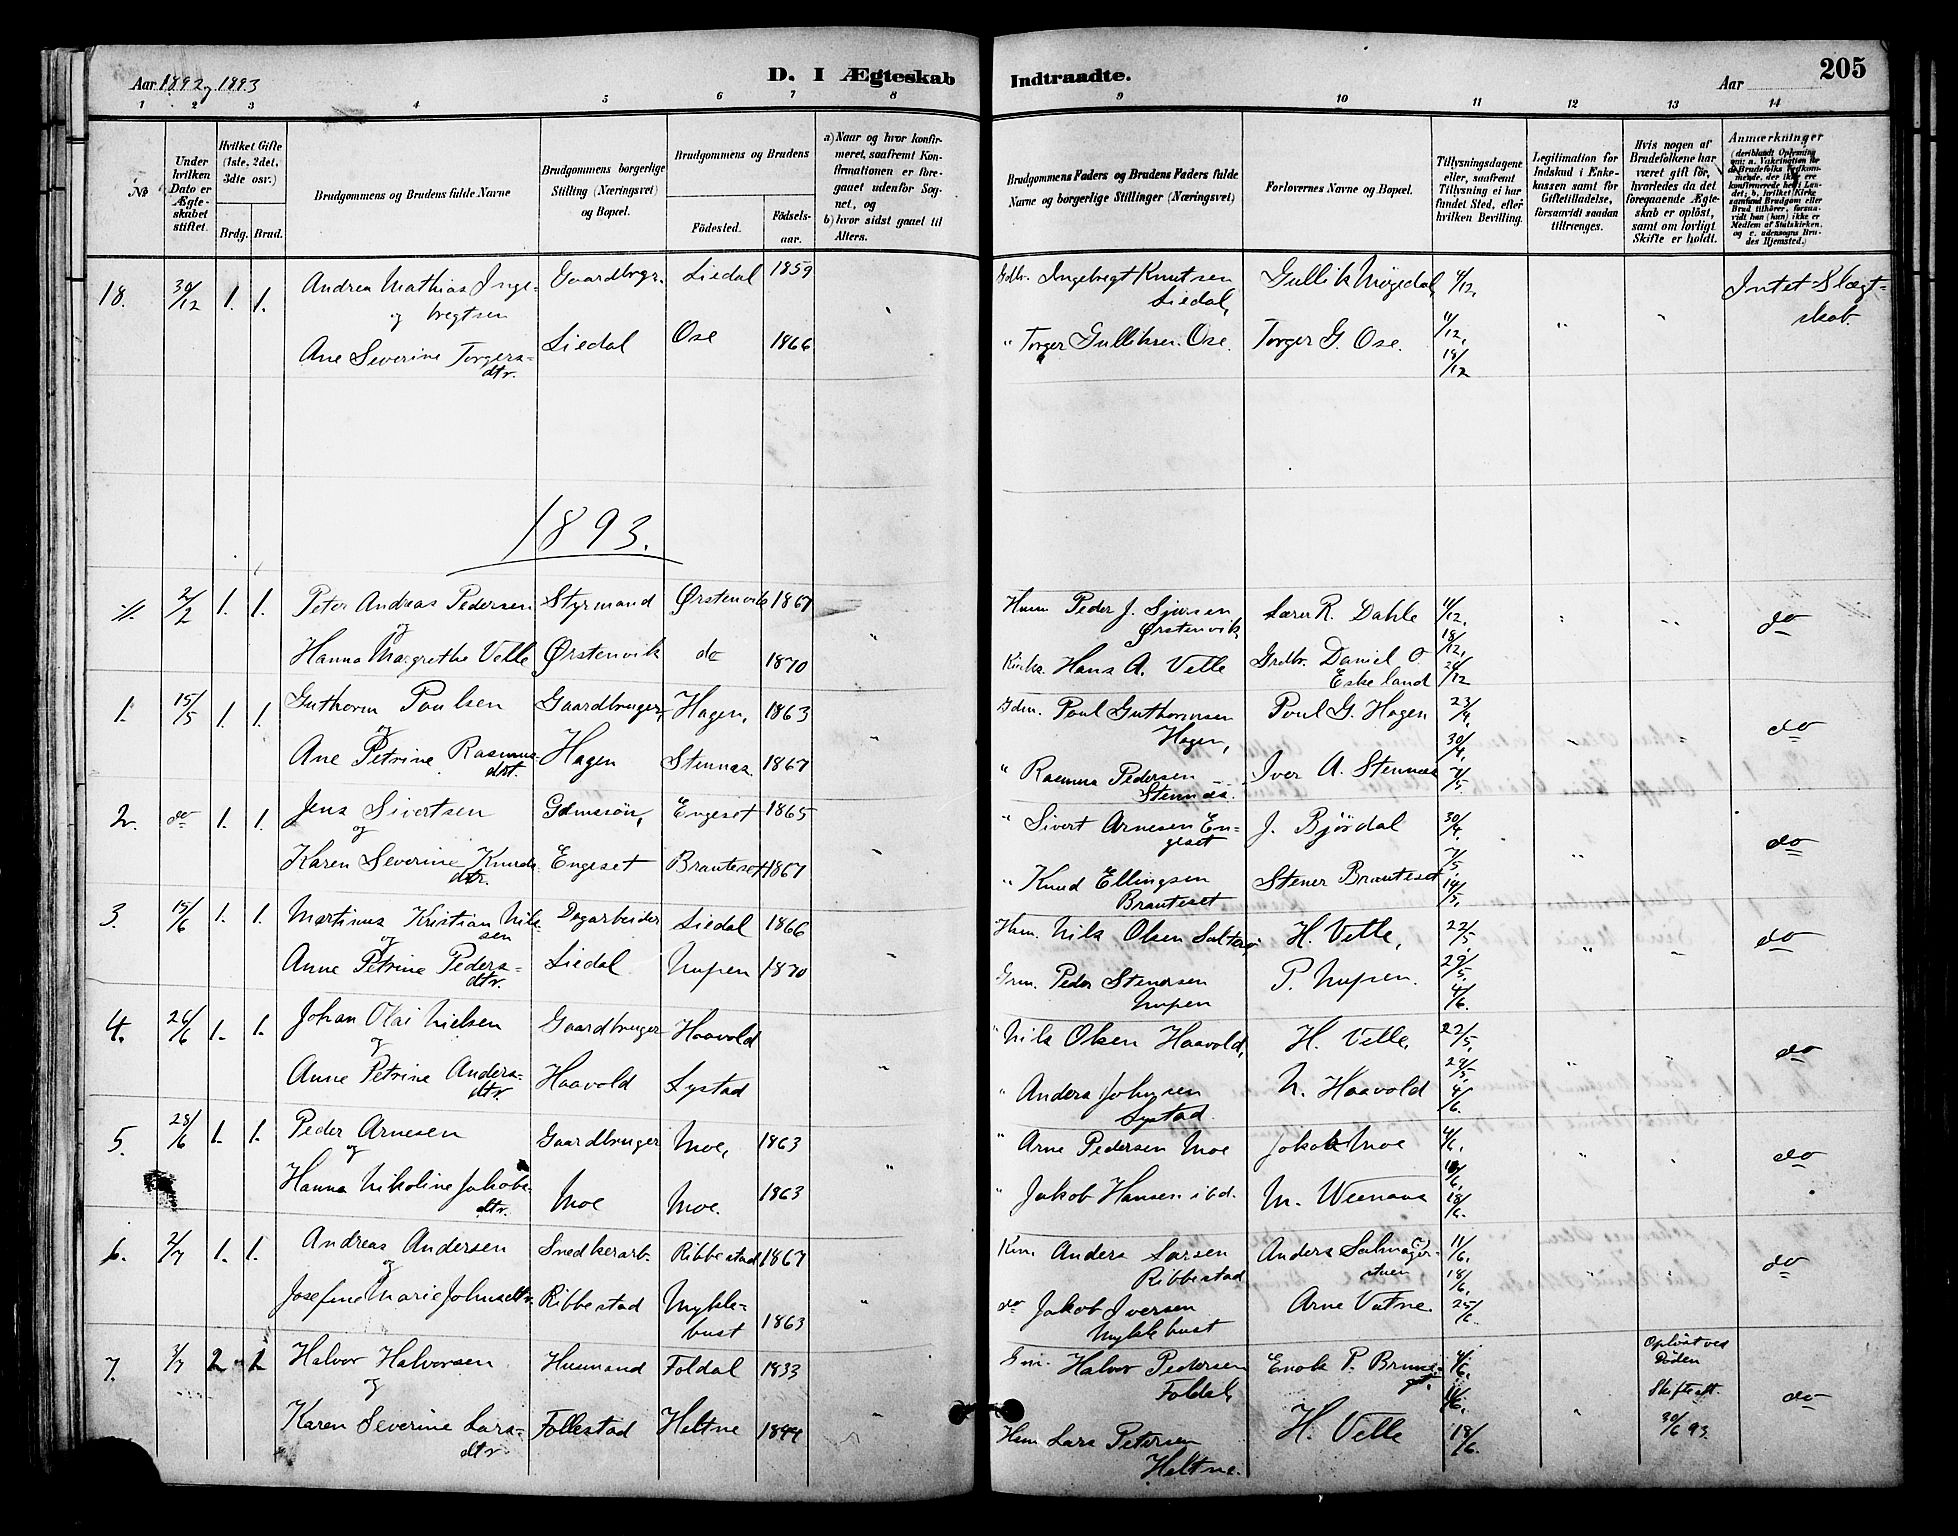 Aar 1892 og 1893
D. I Ægteskab
Indtraadte.
Aar
205
1 2 3 4 5 6 7 8
9 10 11 12 13 14
No
Under hvilken Dato er Ægteskabet stiftet.
Hvilket Gifte (1ste, 2det, 3die osv.)
Brdg. Brud.
Brudgommens og Brudens fulde Navne
Brudgommens borgerlige Stilling (Næringsvei) og Bopæl.
Brudgommens og Brudens
Födested.
Födselsaar.
a) Naar og hvor konfirmeret, saafremt Konfirmationen er foregaaet udenfor Sognet, og
b) hvor sidst gaaet til Alters.
Brudgommens Faders og Brudens Faders fulde Navne og borgerlige Stillinger (Næringsvei)
Forlovernes Navne og Bopæl.
Tillysningsdagene eller, saafremt Tillysning ei har fundet Sted, efter hvilken Bevilling.
Legitimation for Indskud i Enkekassen samt for Giftetilladelse, forsaavidt saadan tiltrænges.
Hvis nogen af Brudefolkene har været gift för, hvorledes da det foregaaende Ægteskab er oplöst, samt om lovligt Skifte er holdt.
Anmærkninger
18. 30/12 1. 1. Andrea Mathias Inge- Gaardbrgr. Liedal 1859
og bregtsen
Ane Severine Torgers- Liedal Ose 1866
dtr.
Gdbr. Ingebregt Knutsen Gullik Mogedal, 4/12,
Liedal,
" Torger Gulliksen Ose. Torger G. Ose. 11/12, 18/12
Intet Slægt-
skab.
1893.
2/2 1. 1. Peter Andreas Pedersen Styrmand Ørstenvik 1867
og
Hanna Margrethe Velle Ørstenvik do 1870
Hmm Peder J. Sjursen Lærer R. Dahle 11/12,
Ørstenvik 18/12,
Hans A. Velle Grdbr. Daniel O. 26/12
Eskeland
do
1. 15/5 1. 1. Guthorm Paulsen Gaardbruger, Hagen, 1863
og
Ane Petrine Rasmus- Hagen Stennes 1867
dtr.
Gdm. Poul Guthormsen Poul G. Hagen 23/4,
Hagen, 30/4,
" Rasmus Pedersen Iver A. Stennes 7/5.
Stennes.
do
2. do 1. 1. Jens Sivertsen Gdmssön, Engeset 1865
og
Karen Severine Knuds- Engeset Brauteset 1867
dtr.
" Sivert Arnesen En- J. Bjørdal 30/4,
geset 7/5,
" Knud Ellingsen Stener Brauteset 14/5,
Brauteset
do
3. 15/6 1. 1. Martinus Kristian Nils- Dagarbeider Liedal 1866
og sen
Anne Petrine Peders- Liedal Nupen 1870
dtr.
Hsm. Nils Olsen H. Velle, 22/5,
Grm. Peder Stenersen P. Nupen. 29/5.
Nupen 4/6.
do
4. 26/6 1. 1. Johan Olai Nielsen Gaardbruger Haavold
og
Anne Petrine Anders- Haavold Systad
dtr.
" Nils Olsen Haavold, H. Velle, 22/5,
29/5,
" Anders Johnsen N. Haavold 4/6.
Systad.
do
5. 28/6 1. 1. Peder Arnesen Gaardbruger Moe, 1863
og
Hanna Nikoline Jakobs- Moe Moe. 1863
dtr.
" Arne Pedersen Moe Jakob Moe 4/6,
" Jakob Hansen ibd. M. Weenaas 18/6.
do
6. 2/7 1. 1. Andreas Andersen Snedkerarb. Ribbestad 1867
og
Josefine Marie Johnsdtr. Ribbestad Mykle- 1863
bust
Anders Larsen Anders 11/6,
Ribbestad stuen 18/6,
do Jakob Iversen Arne Vatne. 25/6.
Myklebust
do
7. 3/7 2 2 Halvor Halvorsen Husmand Foldal 1833
og
Karen Severine Lars- Follestad Heltne 1844
dtr.
Gm. Halvor Pedersen Enok P. 4/6,
Foldal, 11/6,
Hsm Lars Petersen H. Velle 18/6.
Heltne.
Oplöst ved
Döden
Skifteatt.
30/6 93.
do